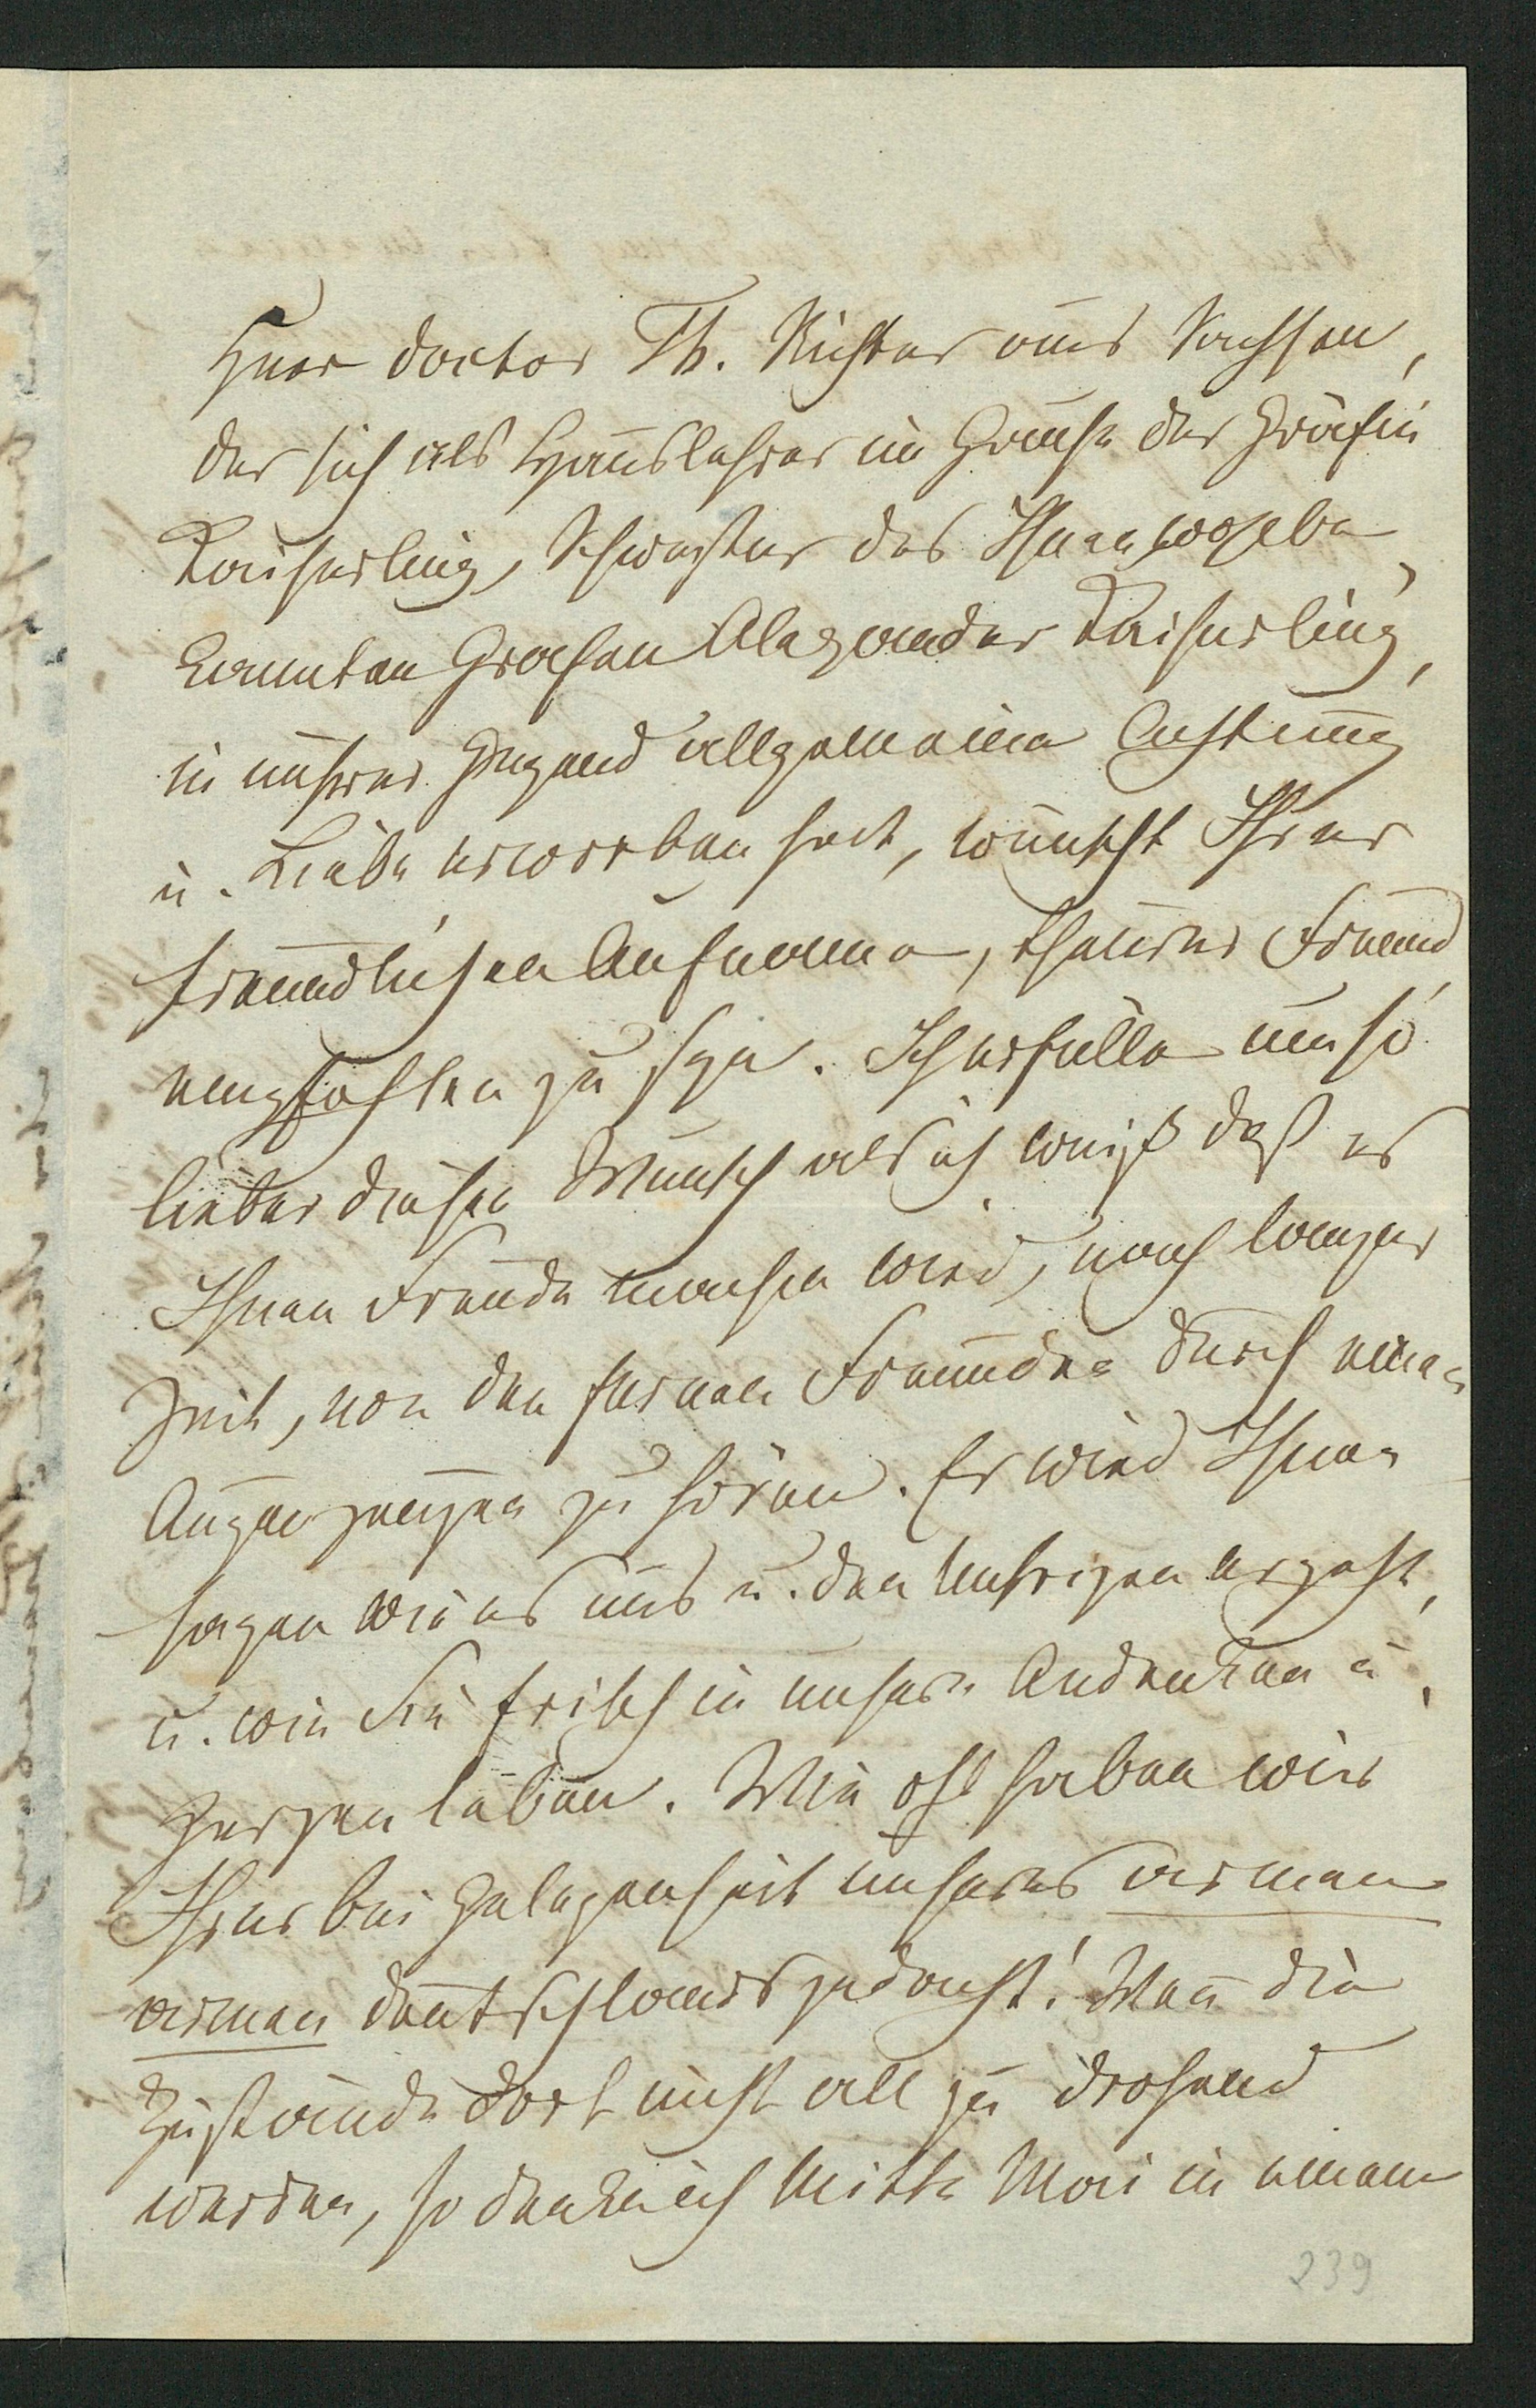 Herr Doctor Th. Richter aus Sachsen,
der sich als Hauslehrer im Hause der Gräfin
Kaiserling, Schwester des Ihnen wohlbe
kannten Grafen Alexander Kaiserling,
in unsrer Gegend allgemeine Achtung
u. Liebe erworben hat, wünscht Ihrer
freundlichen Aufname, theurer Freund,
empfohlen zu seyn. Ich erfülle um so
lieber diesen Wunsch als ich weiß daß es
Ihnen Freude machen wird, nach langer
Zeit, von den fernen Freunden durch einen
Augenzeugen zu hören. Er wird Ihnen
sagen wie es uns u. den Unsrigen ergeht,
u. wie Sie frisch in unserm Andenken u.
Herzen leben. Wie oft haben wir
Ihrer bei Gelegenheit unseres armen
armen Deutschlands gedacht! Wenn die
Zustände dort nicht all zu drohend
werden, so denke ich Mitte Mai in einem
239